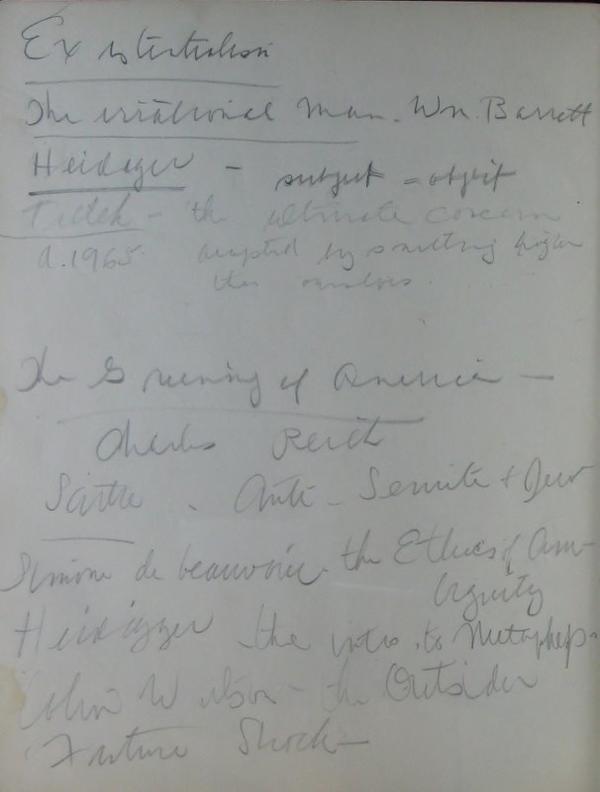 Existentialism
The irrational Man. Wm. Barrett
Heidegger - subject = object
Tillich - the ultimate concern
d. 1965. accepted by something higher
than ourselves.
The Greening of America -
Charles Reich
Sartre - Anti-Semite + Jew
Simone de beauvoir - the Ethics of Am-
biguity
Heidigger - the intro. to Metaphys.
Colin Wilson - the Outsider
Future Shock -